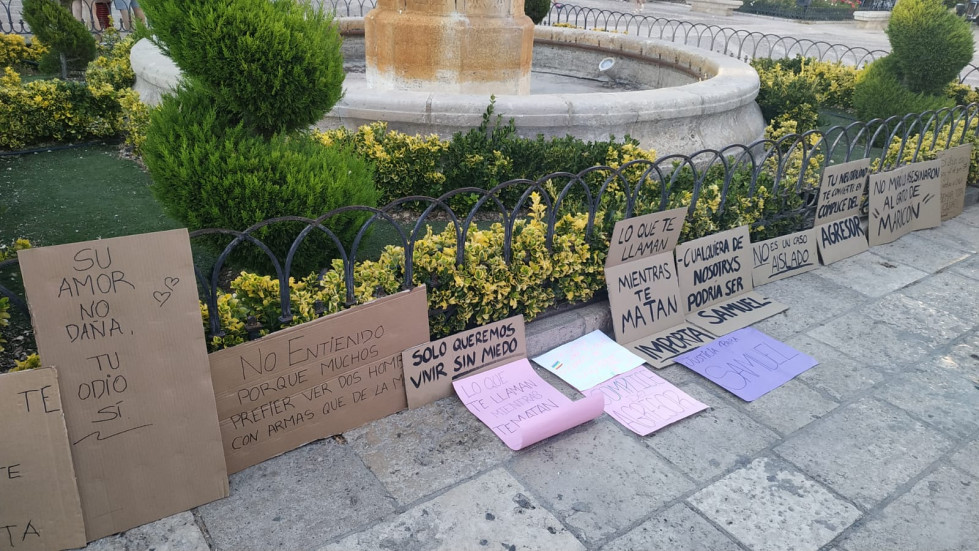 TE
TE
TA
SU
AMOR
NO
DAÑA.
TU
ODIO
SÍ
NO ENTIENDO
PORQUE MUCHOS
PREFIER VER DOS HOM
CON ARMAS QUE DE LA M
SOLO QUEREMOS
VIVIR SIN MEDO
LO QUE
TE LLAMEN
MIENTRAS
TE MATAN
LO QUE
TE LLAMAN
MIENTRAS
TE
MATAN
-CUALQUIERA DE
NOSOTRXS
PODRÍA SER
SAMUEL
IMPORTA
SAMUEL
NO ES UN CASO
AISLADO
TU NEUTRALIDAD
TE CONVIERTE EN
CÓMPLICE DEL
AGRESOR
NO MOLU ASESINARON
AL GRITO DE
"MARICÓN"